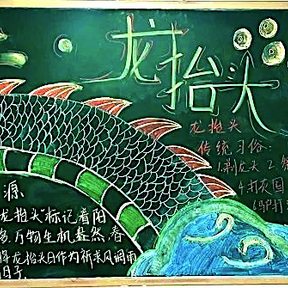 龙抬头
龙抬头
传统习俗:
1.剃龙头 2
4.打灰囤
源
龙抬头"标记着阳
万物生机盎然,春
龙抬头日作为祈求风调雨
日子